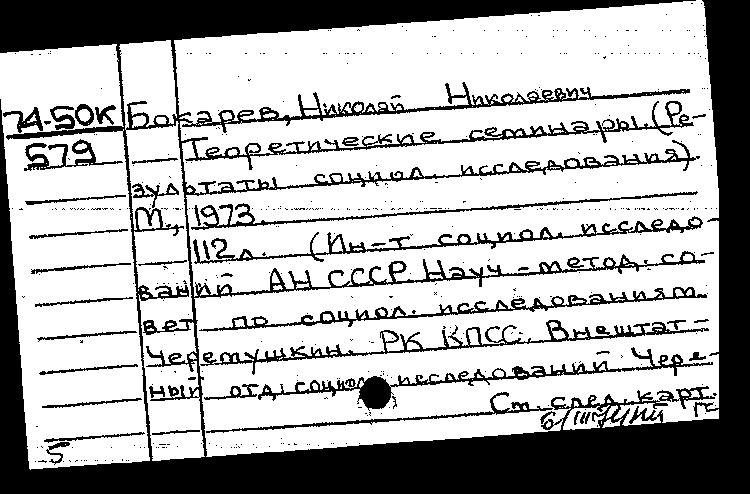 74-50К Бокарев, Николай Николаевич
579 Теоретические семинары. (Ре-
зультаты социол. исследования)
М., 1973.
112л. (Ин-т социол. исследо-
ваний АН СССР. Науч-метод. со-
вет по социол. исследованиям.
Черемушкин. РК КПСС. Внештат-
ный отд. социол. исследований Чере-
См. след. карт.
5